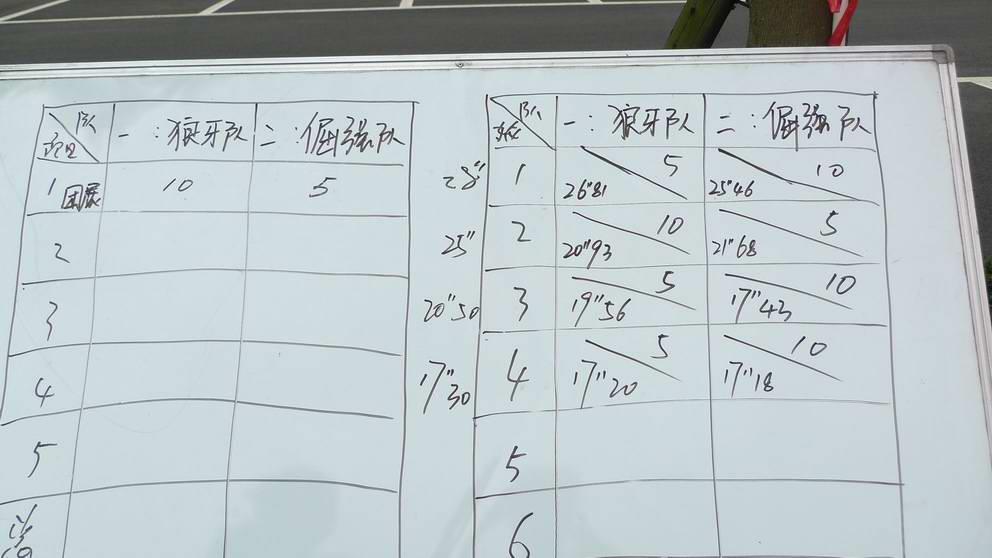 队 一：狼牙队 二：倔强队
项目
1 团展 10 5
2
3
4
5
队 一：狼牙队 二：倔强队
28" 1 26"81 5 25"46 10
25" 2 20"93 10 21"68 5
20"50 3 19"56 5 17"43 10
17"30 4 17"20 5 17"18 10
5
6